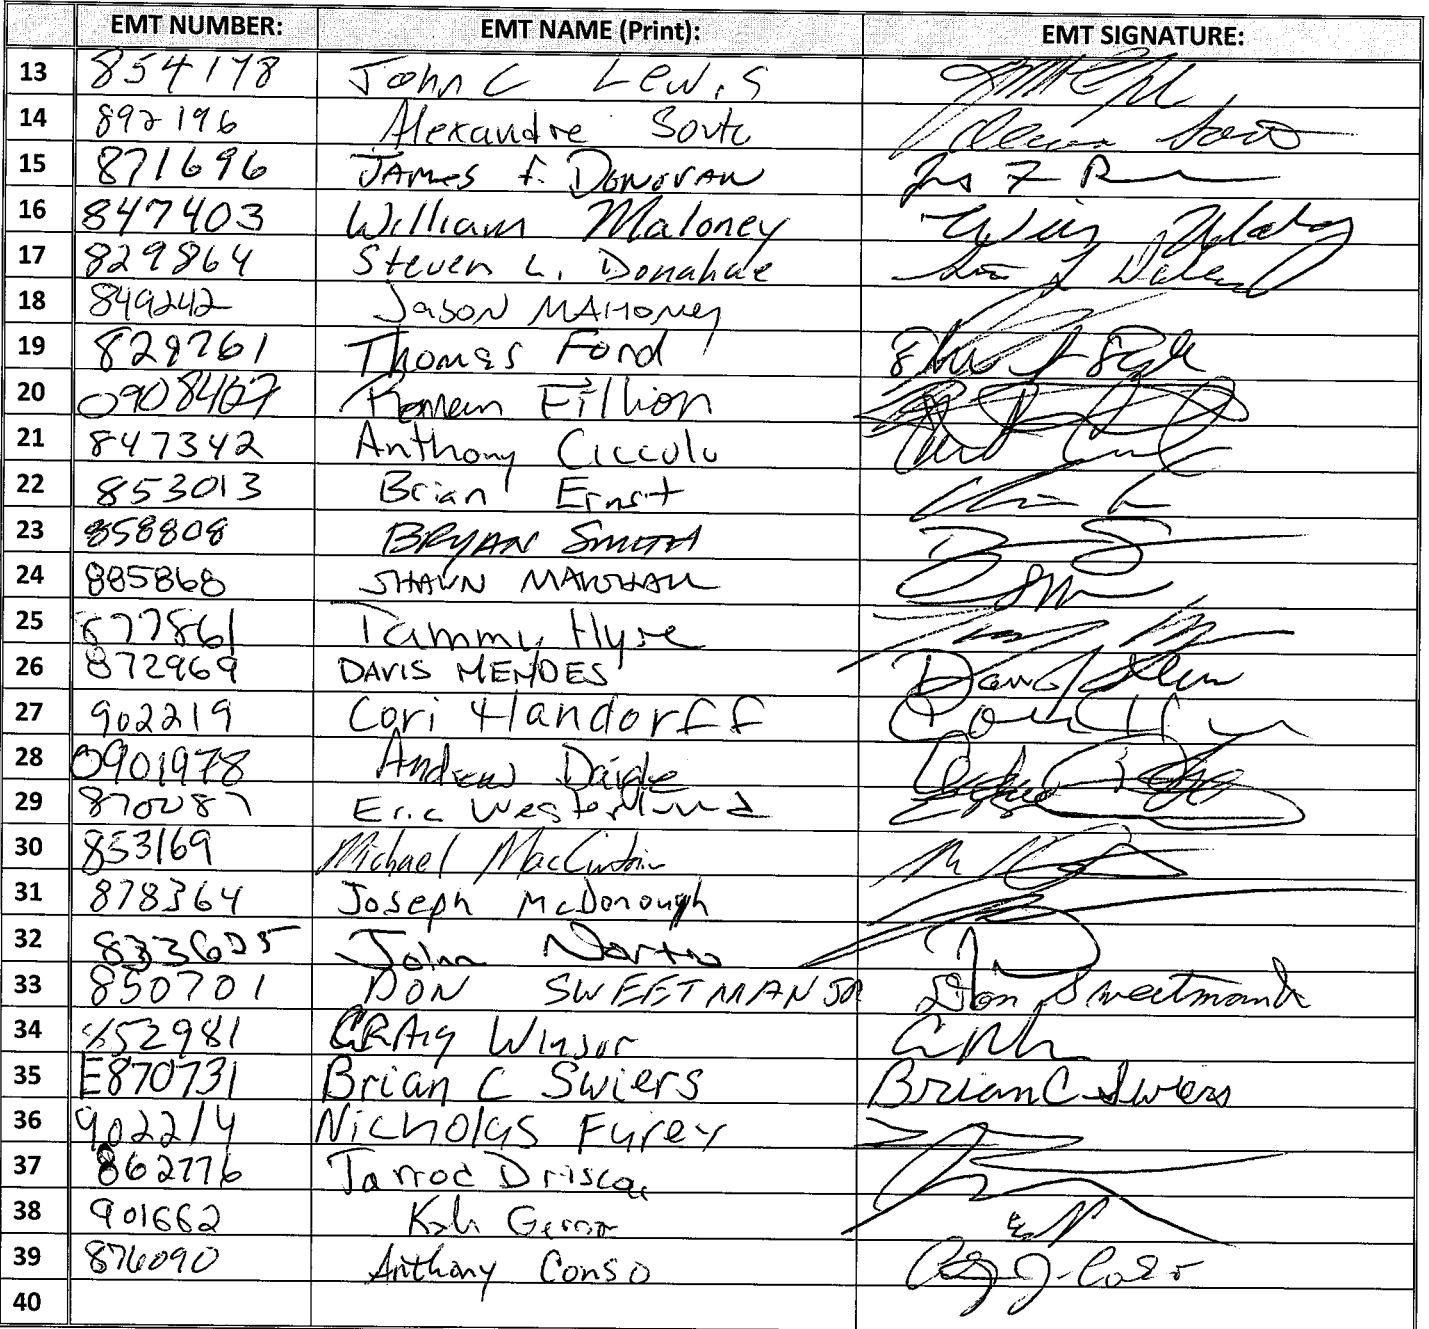 EMT NUMBER: EMT NAME (Print): EMT SIGNATURE:
13 854178 John C Lewis
14 892196 Alexandre Souto
15 871696 JAMES F. DONOVAN
16 847403 William Maloney
17 829864 Steven L. Donahue
18 849242 Jason MAHONEY
19 829761 Thomas Ford
20 0908467 Fillion
21 847342 Anthony Ciccolo
22 853013 Brian Ernst
23 858808 BRYAN SMITH
24 885868 SHAWN MARSHALL
25 877861 Tammy Hyre
26 872969 DAVIS MENDES
27 902219 Cori Handorff
28 0901978 Andrew Daigle
29 870087 Eric Westerlund
30 853169 Michael
31 878364 Joseph McDonough
32 833605 John
33 850701 DON SWEETMAN JR Don Sweetman Jr
34 852981 CRAIG Winsor
35 E870731 Brian C Swiers Brian C Swiers
36 902214 Nicholas Furey
37 862776 Jarrod
38 901662
39 876090 Anthony Conso
40